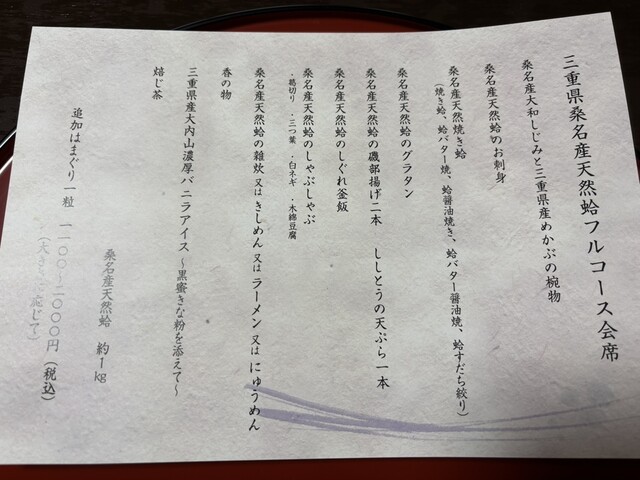 三重県桑名産天然蛤フルコース会席
桑名産大和しじみと三重県産めかぶの椀物
桑名産天然蛤のお刺身
桑名産天然焼き蛤
(焼き蛤、蛤バター焼、蛤醤油焼き、蛤バター醤油焼、蛤すだち絞り)
桑名産天然蛤のグラタン
桑名産天然蛤の磯部揚げ二本 ししとうの天ぷら一本
桑名産天然蛤のしぐれ釜飯
桑名産天然蛤のしゃぶしゃぶ
・葛切り ・三つ葉 ・白ネギ ・木綿豆腐
桑名産天然蛤の雑炊 又は きしめん 又は ラーメン 又は にゅうめん
香の物
三重県産大内山濃厚バニラアイス ~黒蜜きな粉を添えて~
焙じ茶
桑名産天然蛤 約1kg
追加はまぐり一粒 一一〇〇~二〇〇〇円(税込)
(大きさに応じて)